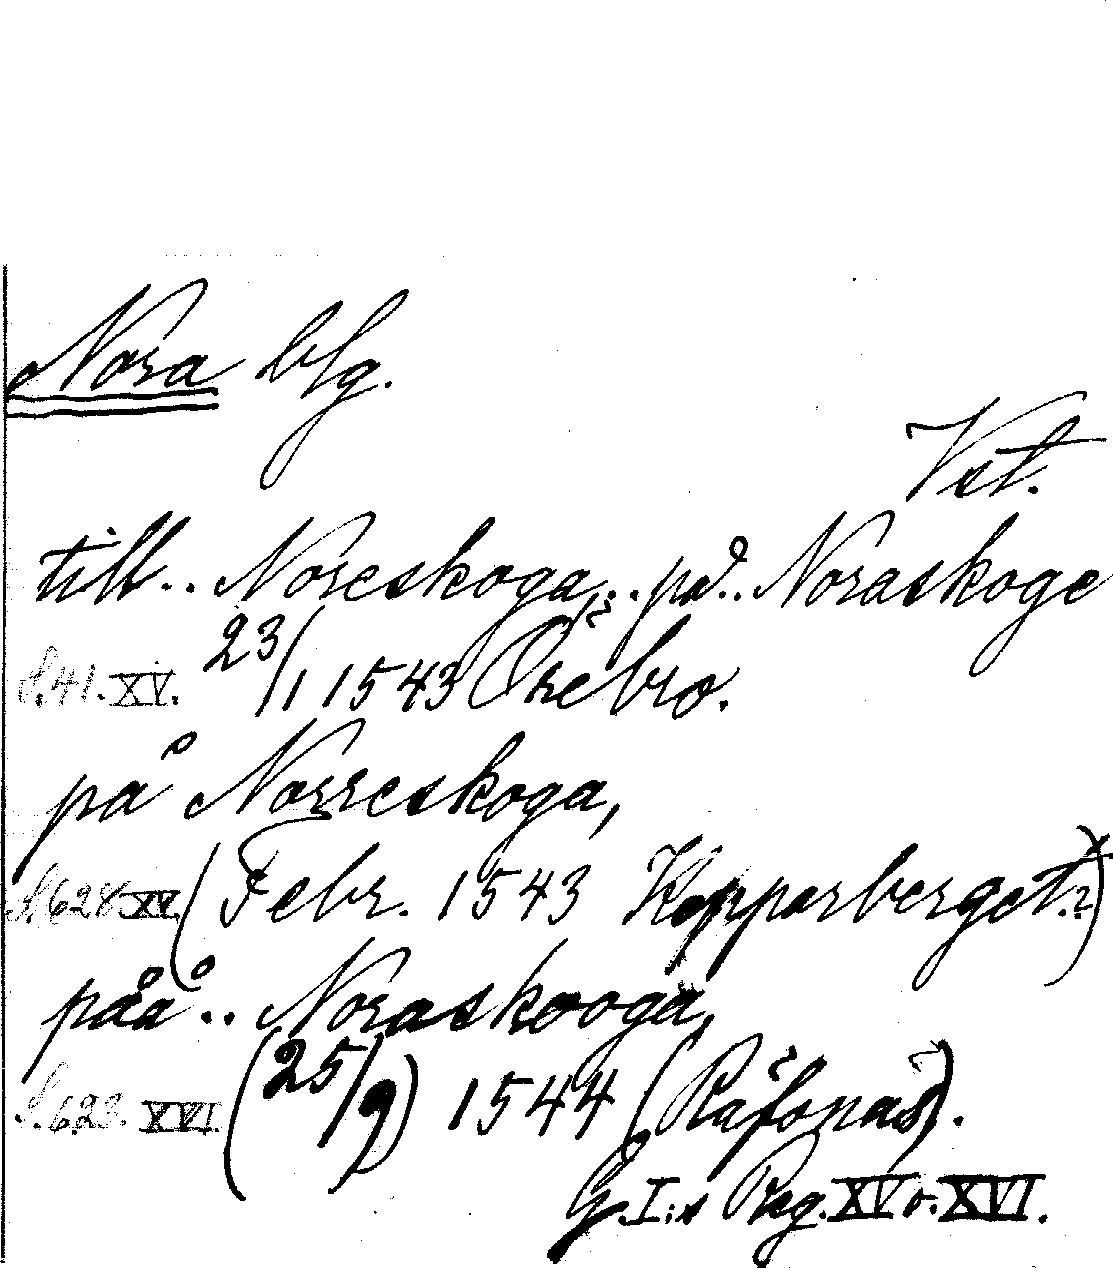 Nora blg.
Vst.
till.. Noreskoga,.. på.. Noraskoge
S.41. XV. 23/1 1543 Örebro.
på Norreskoga,
S.628 XV. (Febr. 1543 Kopparberget?)
påå.. Noraskooga,
S.623. XVI (25/9) 1544 (Räfsnäs).
G.I:s Reg. XV o. XVI.